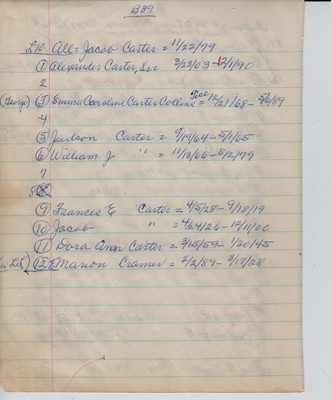 B39
L10 All = Jacob Carter = 11/22/79
① Alexander Carter, Sr = 3/23/03 - 12/1/90
2
(George) ③ Emma Caroline Carter Collins = 12/21/68 - 5/6/89
4
⑤ Judson Carter = 9/14/64 - 5/1/65
⑥ William J " = 11/13/66 - 8/2/79
7
8
⑨ Frances E Carter = 4/5/28 - 9/18/19
⑩ Jacob " = 4/24/26 - 12/11/00
⑪ Dora Ann Carter = 3/15/59 - 1/20/45
⑫ E Marion Cramer = 2/2/89 - 3/17/28